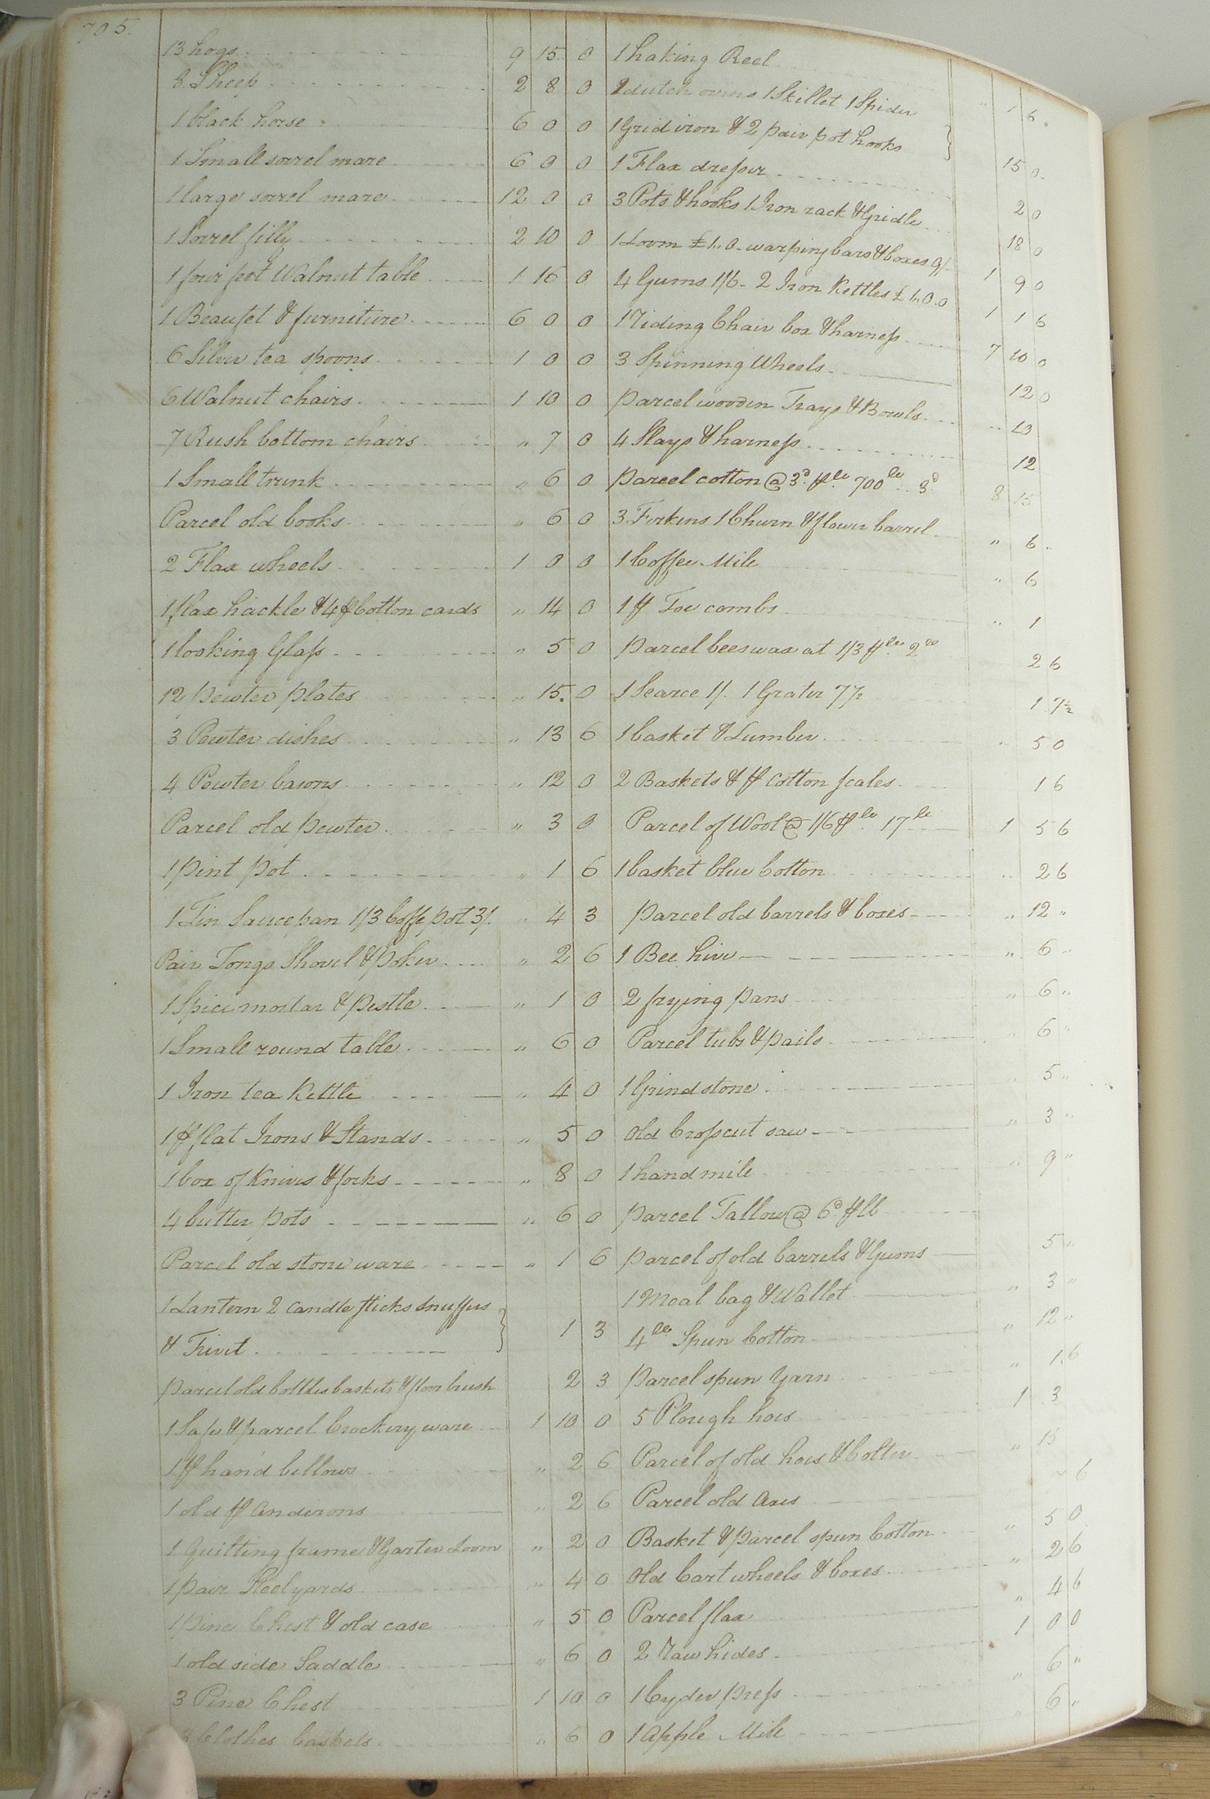 705.
13 hogs 9 15 0
8 Sheep 2 8 0
1 black horse 6 0 0
1 Small sorrel mare 6 0 0
1 large sorrel mare 12 0 0
1 Sorrel filly 2 10 0
1 four feet Walnut table 1 16 0
1 Beaufet & furniture 6 0 0
6 Silver tea spoons 1 0 0
6 Walnut chairs 1 10 0
7 Rush bottom chairs " 7 0
1 Small trunk " 6 0
Parcel old books " 6 0
2 Flax wheels 1 0 0
1 flax hackle & 4 pr Cotton cards " 14 0
1 looking Glass " 5 0
12 pewter plates " 15. 0
3 Pewter dishes " 13 6
4 Pewter basons " 12 0
Parcel old pewter " 3 9
1 pint pot " 1 6
1 Tin Saucepan 1/3 Coffe pot 3/. " 4 3
Pair Tongs Shovel & poker " 2 6
1 Spice mortar & pestle " 1 0
1 Small round table " 6 0
1 Iron tea Kettle " 4 0
1 pr flat Irons & Stands " 5 0
1 box of Knives & forks " 8 0
4 butter pots " 6 0
Parcel old stone ware " 1 6
1 Lantern 2 candlesticks snuffers
& Trivit 1 3
parcel old bottles baskets & floor brush 2 3
1 Safe & parcel Crockery ware 1 10 0
1 pr hand bellows " 2 6
1 old pr andirons " 2 6
1 Quilting frame & Garter Loom " 2 0
1 pair Steelyards " 4 0
1 pine Chest & old case " 5 0
1 old side Saddle " 6 0
3 Pine Chest 1 10 0
3 Clothes baskets " 6 0
1 haking Reel " 1 6.
2 dutch ovens 1 Skillet 1 Spider
1 Grid iron & 2 pair pot hooks 15 0
1 Flax dresser 2 0
3 Pots & hooks 1 Iron rack & Gridle 18 0
1 Loom £1..0. warping bars & boxes 9/ 1 9 0
4 Gums 1/6 - 2 Iron Kettles £1.0.0 1 1 6
1 riding Chair box & harness 7 10 0
3 Spinning Wheels 12 0
parcel wooden Trays & Bowls 10
4 Slays & harness 12
parcel cotton @ 3d pr lb 700 lb 3d 8 15
3 Firkins 1 Churn & flower barrel " 6
1 Coffee Mill " 6
1 pr Tow combs " 1
parcel beeswax at 1/3 pr lb 2 lb 2 6
1 Searce 1/. 1 Grater 7½ 1 7½
1 basket & Lumber 5 0
2 Baskets & pr cotton scales 1 6
Parcel of Wool @ 1/6 pr lb 17 lb 1 5 6
1 basket blue Cotton " 2 6
parcel old barrels & boxes " 12 "
1 Bee hive " 6 "
2 frying pans " 6 "
Parcel tubs & pails 6 "
1 Grindstone 5 "
old Crosscut saw " 3 "
1 hand mill " 9 "
parcel Tallow @ 6d pr lb
parcel of old barrels & Gums 5 "
1 Meal bag & Wallet " 3 "
4 lb Spun Cotton " 12 "
parcel spun Yarn " 1.6
5 Plough hoes 1 3
Parcel of old hoes & Colter " 15
Parcel old axes 6
Basket & parcel spun Cotton " 5 0
old Cart wheels & boxes " 2 6
Parcel flax " 4 6
2 raw hides 1 0 0
1 Cyder press " 6 "
1 apple Mill " 6 "